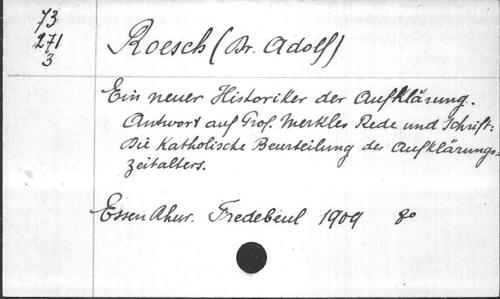 73
271
3
Roesch (Dr. Adolf)
Ein neuer Historiker der Aufklärung.
Antwort auf Prof. Merkles Rede und Schrift:
Die Katholische Beurteilung des Aufklärungs=
zeitalters.
Essen Ruhr. Fredebeul 1909 8o